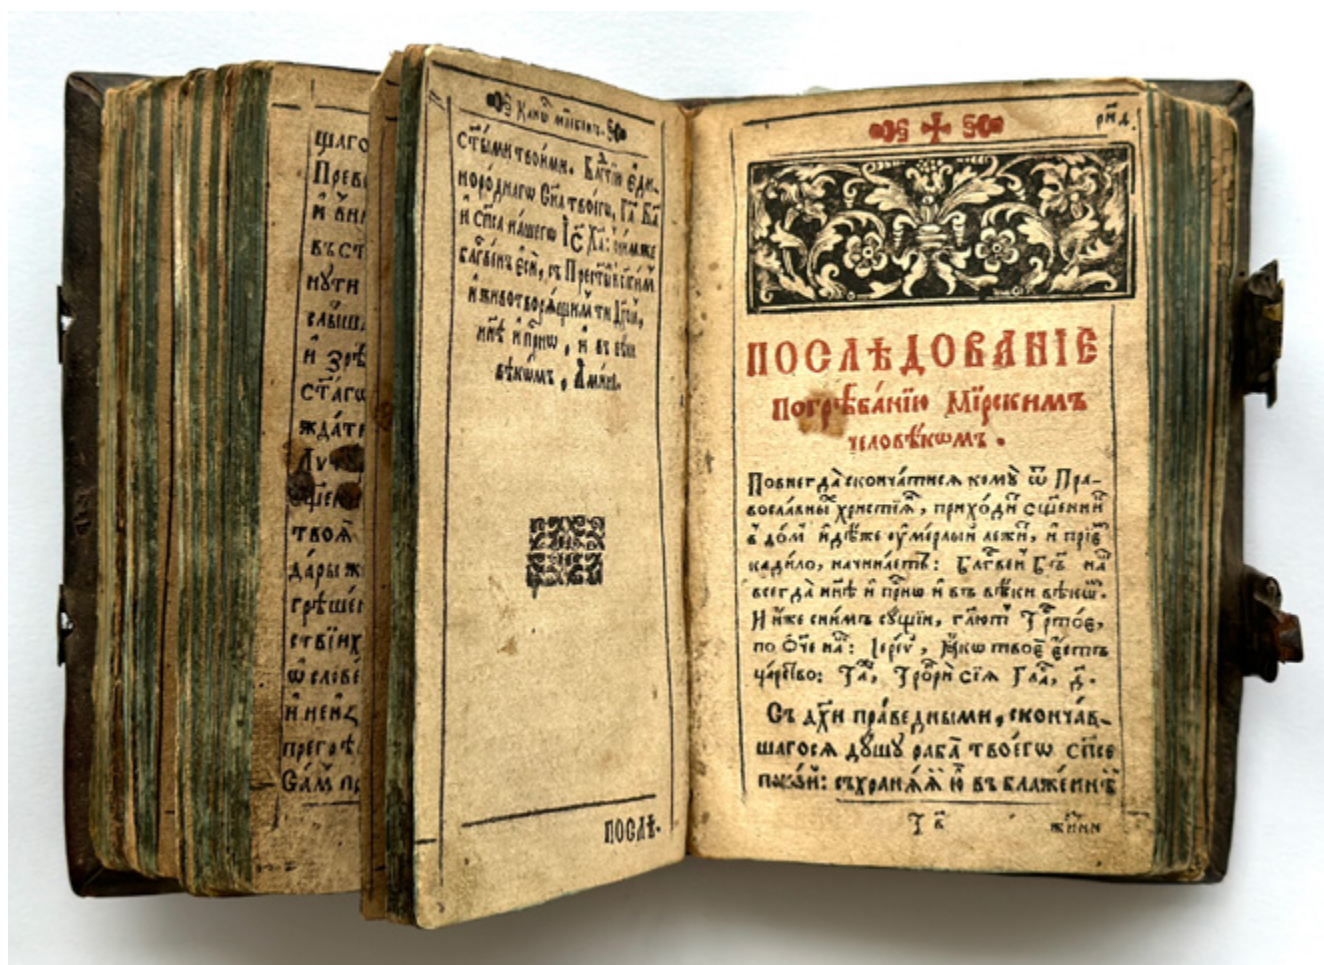 щаго
Преве
въст
нꙋти
и зрѣ
ст҃аго
ждати
твоѧ҄
дары ж
грѣшен
ствїих
ѿ челове
прегрѣ
Са́м пр
Кано́
ст҃ы́ми твои́ми. Бл҃гⷣтїю є҆ди-
норо́днагѡ Сн҃а твоегѡ̀, Гⷭ҇а Бг҃а
и Сп҃са на́шегѡ І҆и҃с Хрⷭ҇та̀: с ни́мже
бл҃гве́нъ є҆сѝ, съ Прест҃ы́мъ
и животворѧ́щимъ ти Дх҃омъ,
ны́нѣ и при́снѡ, и въ вѣ́ки
вѣкѡ́мъ, А҆ми́нь.
послѣ-
рн҃д.
ПОСЛѢДОВАНІЕ
погреба́нїю мїрскимъ
человѣ́кѡмъ.
Повнегда̀ сконча́тисѧ комꙋ̀ ѿ Пра-
восла́вныⷯ хрⷭтїѧⷩ, прихо́диⷮ сщ҃е́нникъ
в до́м и҆дѣ́же ᲂу҆ме́рлый лежи́ⷮ, и прїе́мъ
кади́ло, начина́етъ: Бл҃гве́нъ Бг҃ъ на́шъ
всегда̀ ны́нѣ и при́снѡ и въ вѣ́ки вѣкѡ́мъ.
И и҆́же с ни́мъ сꙋ́щїи, гл҃ютъ Трⷭ҇то́е,
по Ѻ҆́че на́шъ: Іере́й, Ꙗ҆́кѡ твоѐ є҆́сть
ца́рство: Та́же, Тропарѝ сїѧ̀ Гла́съ, д҃.
Съ дх҃и пра́ведными, сконча́в-
шагосѧ дꙋ́шꙋ раба̀ твоегѡ̀ сп҃се
поко́й: съхранѧ́ѧ ю҆̀ въ блаже́ннѣй
жи́зни